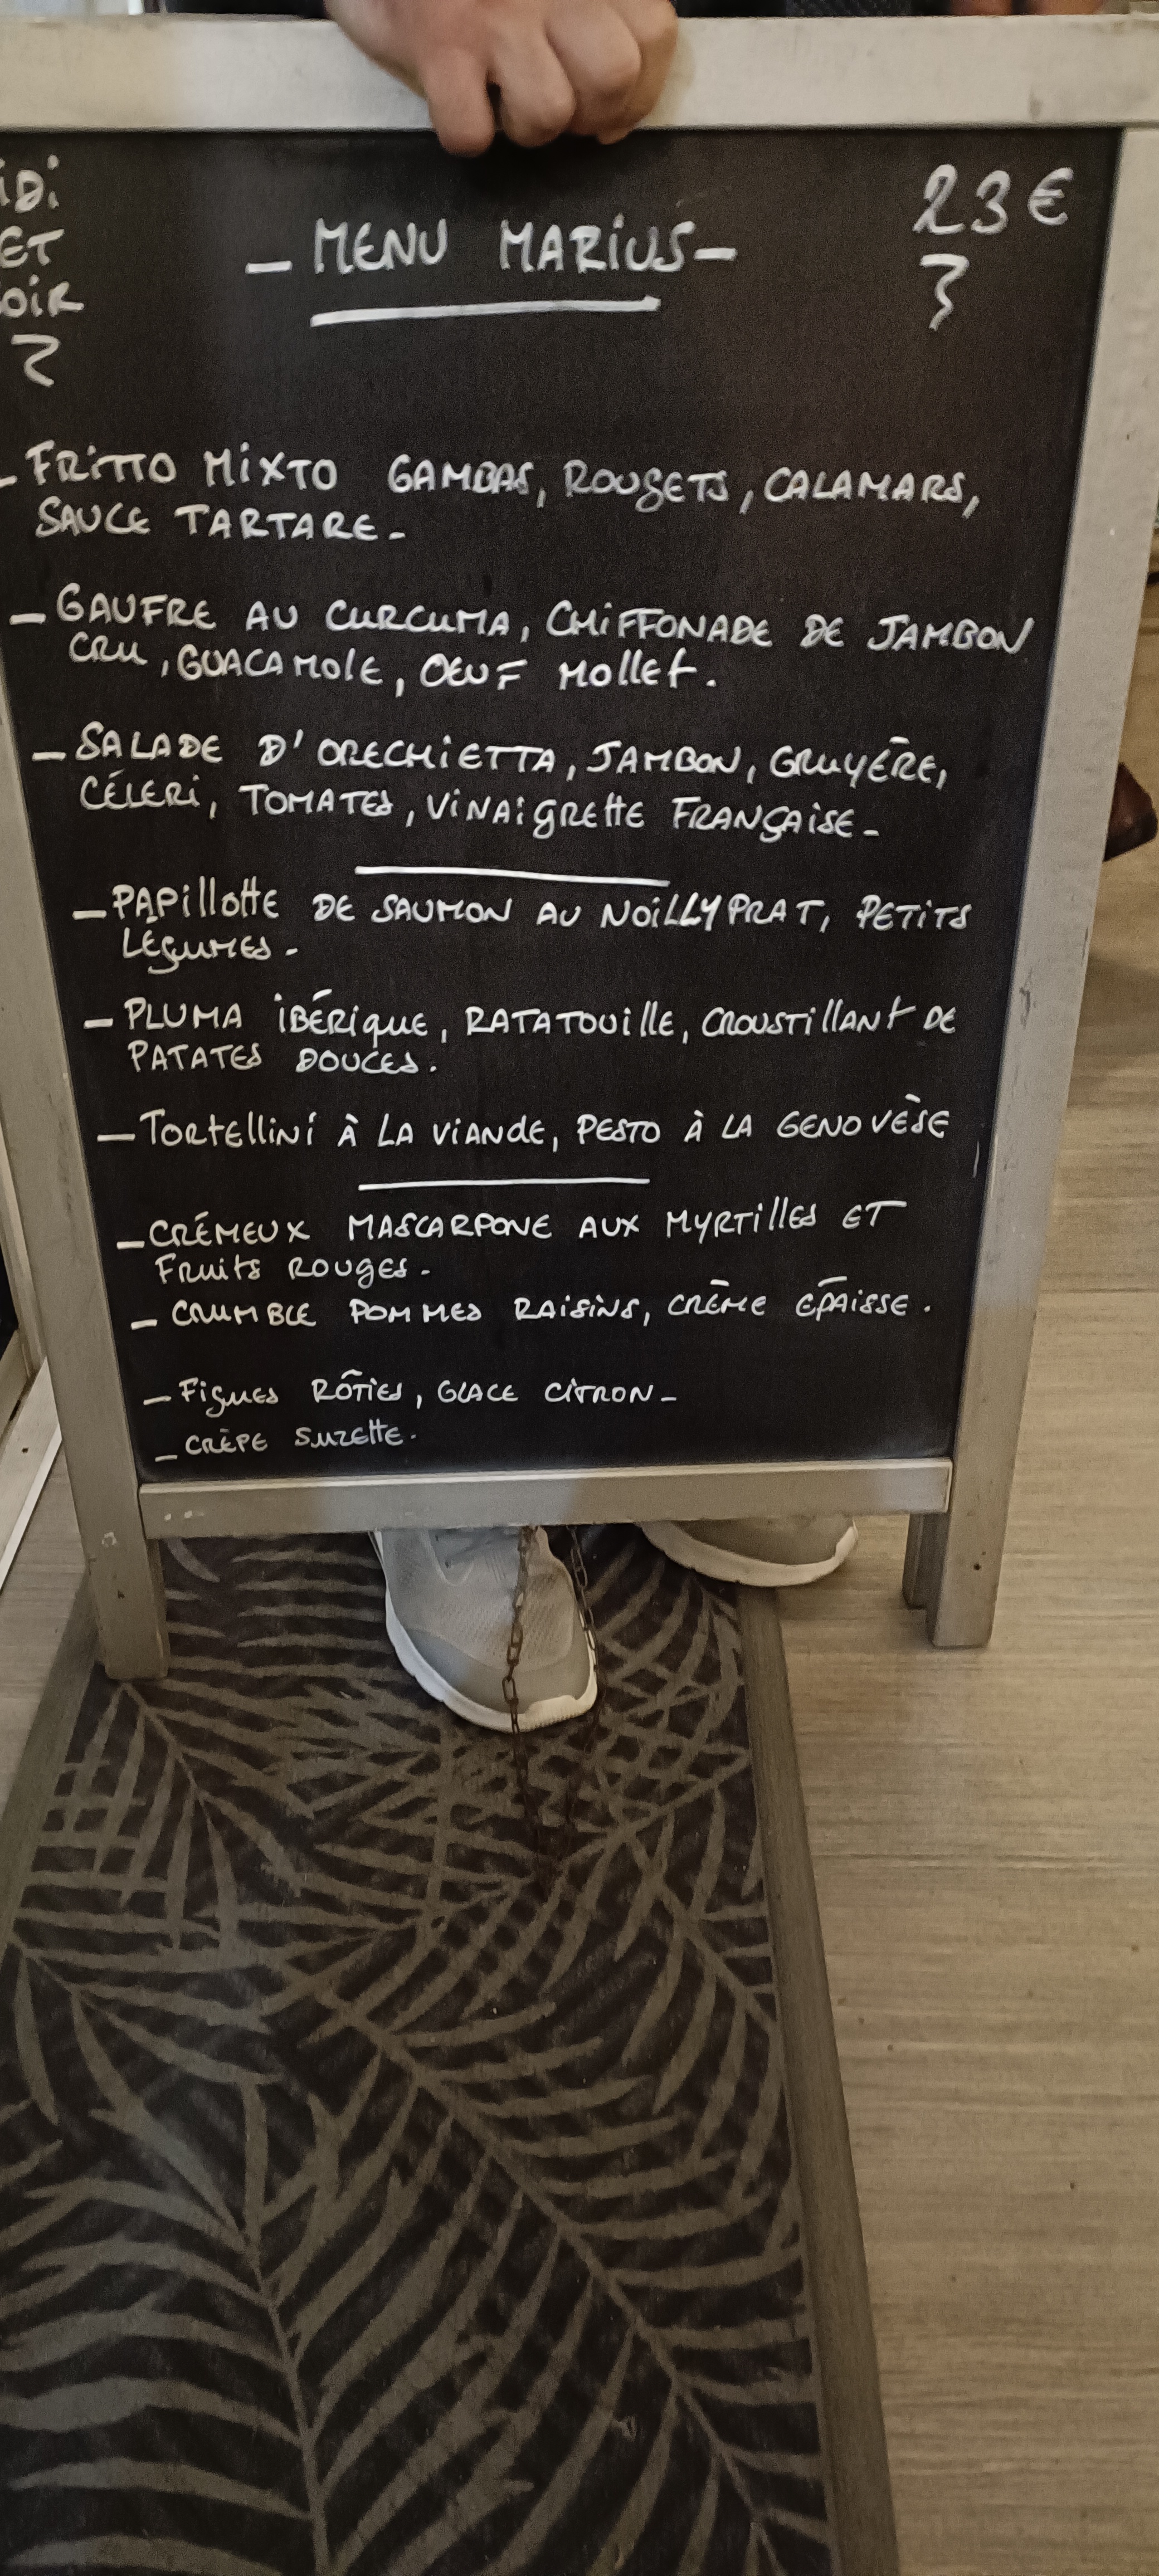 iDi
ET
OiR
23 €
- MENU MARiUS -
- FRiTTO MiXTO GAMBAS, ROUGETS, CALAMARS,
SAUCE TARTARE -
- GAUFRE AU CURCUMA, CHiFFONADE DE JAMBON
CRU, GUACAMOlE, OEUF MOllEt.
- SALADE D'ORECHiETTA, JAMBON, GRUYÉRE,
CÉLERi, TOMATES, ViNAigREttE FRANÇAiSE -
- PAPillOttE DE SAUMON AU NOiLLY PRAT, PETiTS
LÉgUMES -
- PLUMA iBÉRiquE, RATATOUillE, CROUSTillANt DE
PATATES DOUCES.
- TORtElliNi À LA ViANdE, PESTO À LA GENOVÈSE
- CRÉMEUX MASCARPONE AUX MYRTillES ET
FRuitS ROUGES -
- CRUMBLE POMMES RAiSiNS, CRÈME EPAiSSE.
- FigUES RÔTiES, GLACE CiTRON -
- CRÈPE SUZEttE.